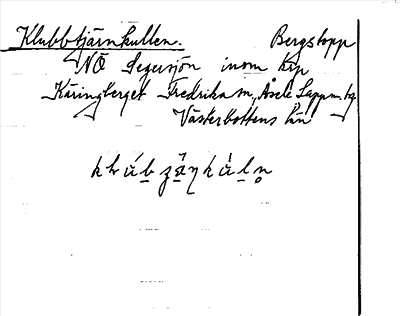 Klubbtjärnkullen. Bergstopp
NÖ Segersjön inom krp
Käringberget Fredrika sn., Åsele Lappm. tg.
Västerbottens län